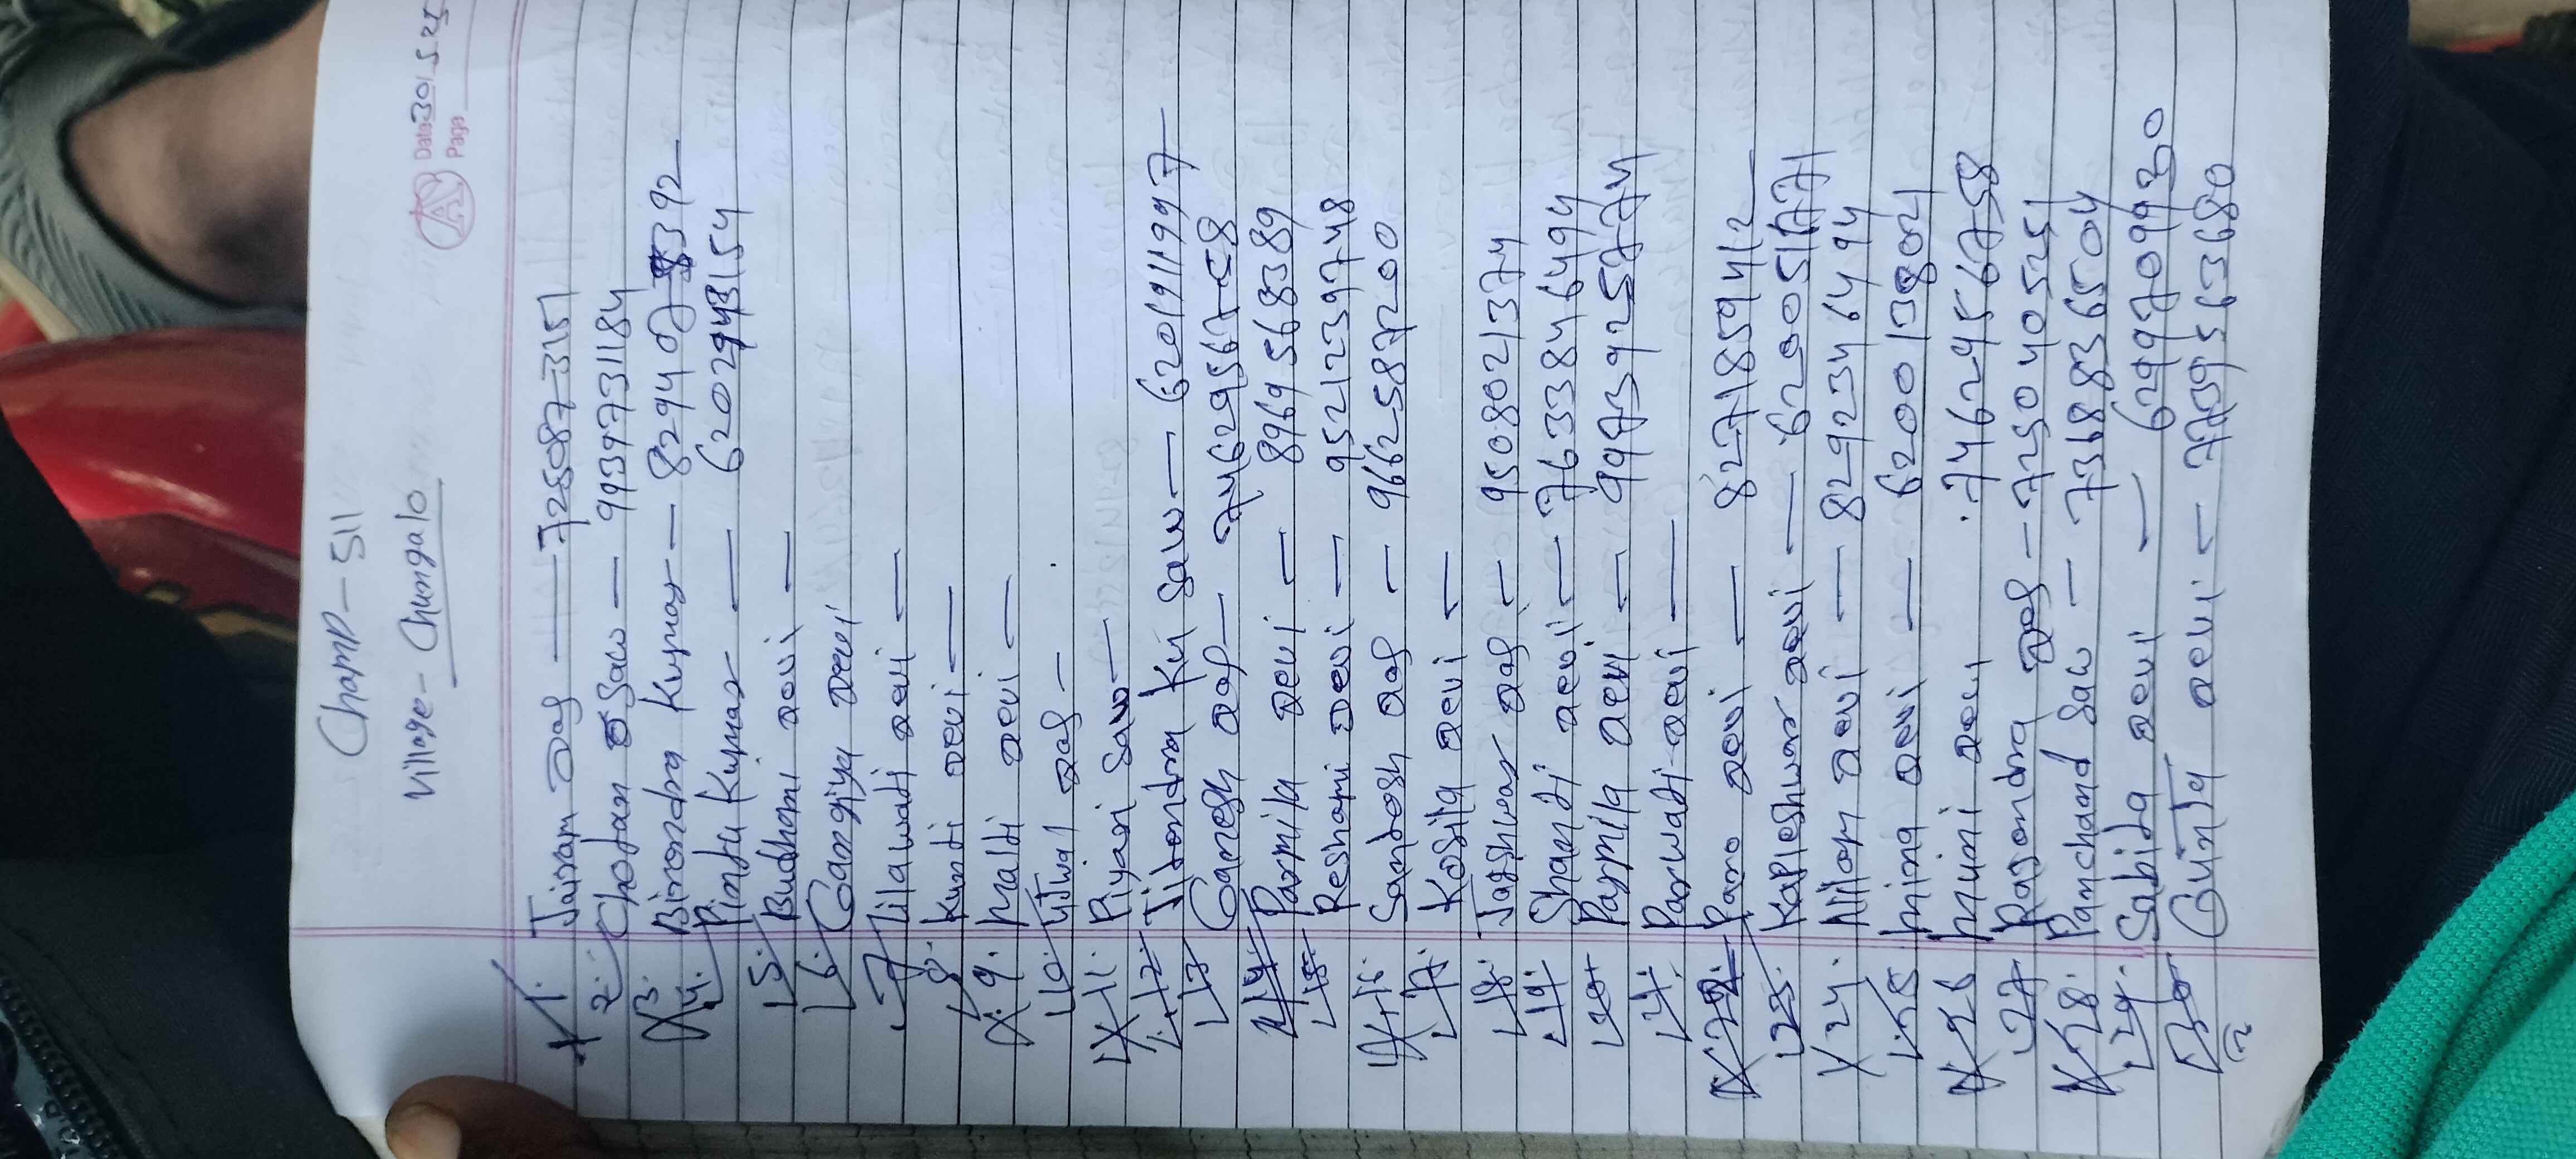 Champ-511
Date 30/5/25
Page
Village - Chungalo
1. Jairam Das — 7250873151
2. Chotan Saw — 9939731184
3. Birendra Kumar — 8294078392
4. Pintu Kumar — 6202943154
5. Budhni Devi —
6. Gangiya Devi
7. Lilawati Devi —
8. Kunti Devi —
9. Malti Devi —
10. Das —
11. Piyari Saw —
12. Jitendra Kri Saw — 6201911997
13. Ganesh Das —
14. Parmila Devi — 8969568389
15. Reshami Devi — 9521239748
16. Santosh Das — 9662587200
17. Kosila Devi —
18. Jageshwar Das — 9508021374
19. Shanti Devi — 7633846494
20. Parmila Devi — 9973925774
21. Parwati Devi —
22. Pano Devi — 8271859412
23. Kapleshwar Devi — 6200511771
24. Nilam Devi — 8292346494
25. Mina Devi — 6200013804
26. Muni Devi 7462956758
27. Rajendra Das — 725040525
28. Pamchand Saw — 7368836504
29. Sabita Devi — 6299709930
30. Devi — 7739563680